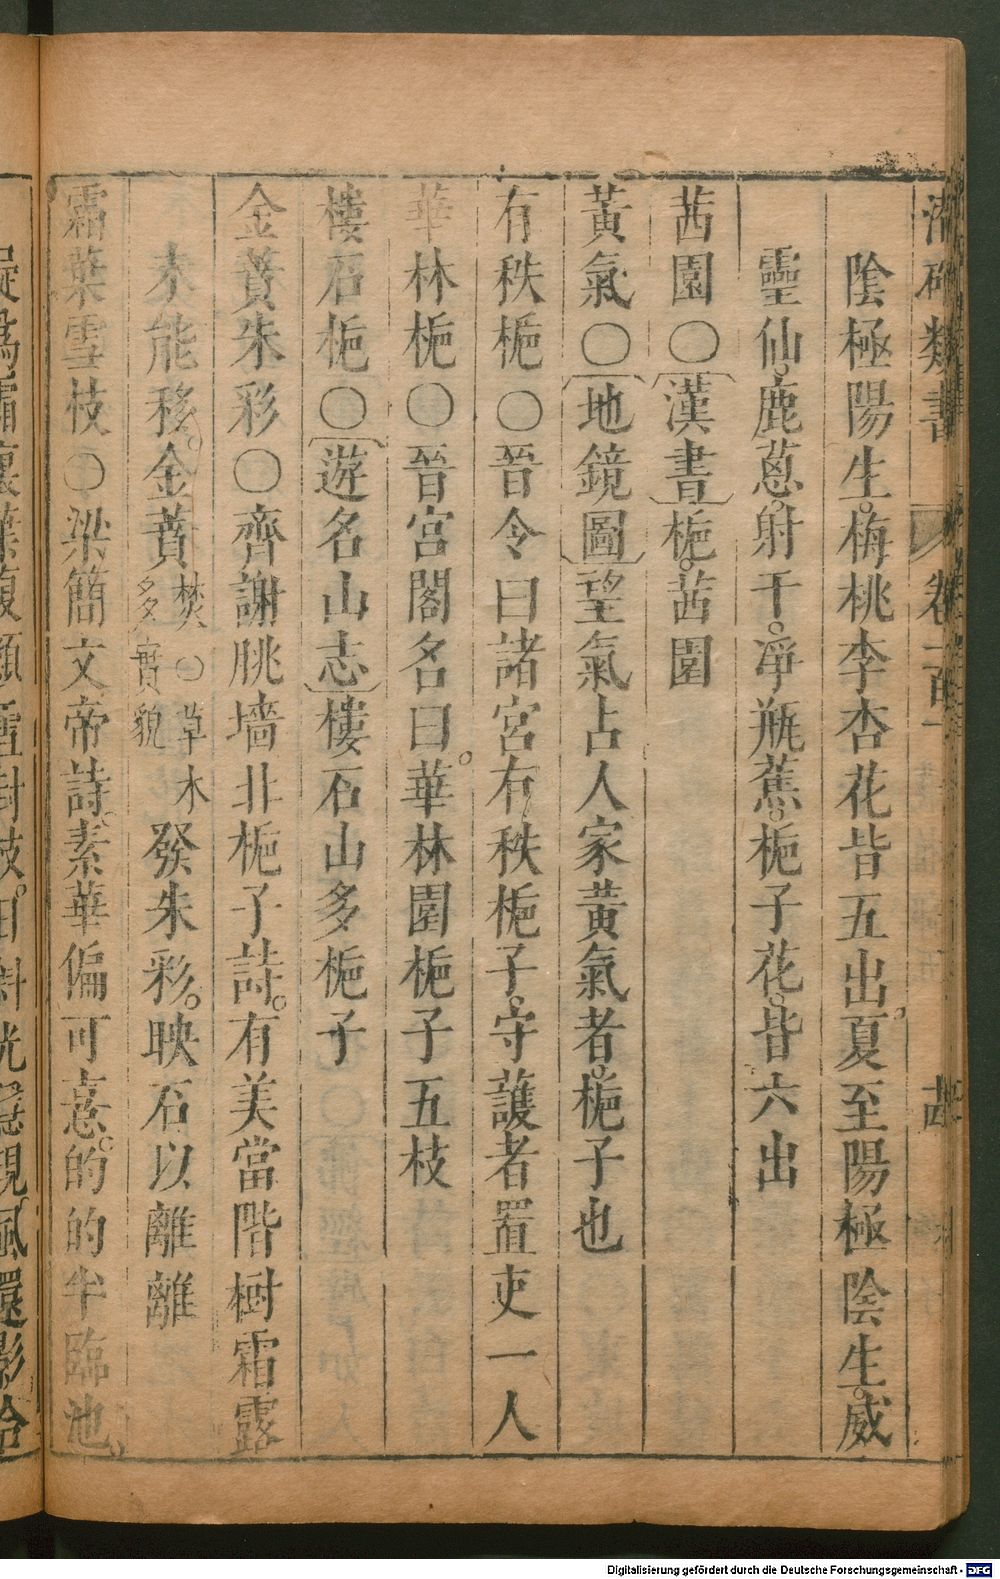 類書 卷一百一
陰極陽生。梅桃李杏花皆五出。夏至陽極陰生。威
靈仙。鹿葱。射干。淨瓶蕉。梔子花。皆六出
茜園〇漢書梔。茜園
黃氣〇地鏡圖望氣占人家黃氣者。梔子也
有秩梔〇晉令曰諸宮有秩梔子。守護者置吏一人
華林梔〇晉宮閣名曰。華林園梔子五枝
樓石梔〇遊名山志樓石山多梔子
金蕡朱彩〇齊謝朓墻北梔子詩。有美當階樹霜露
未能移。金蕡焚〇草木多實貌發朱彩。映石以離離
霜葉雪枝〇梁簡文帝詩。素華偏可憙。的的半臨池。
Digitalisierung gefördert durch die Deutsche Forschungsgemeinschaft - DFG